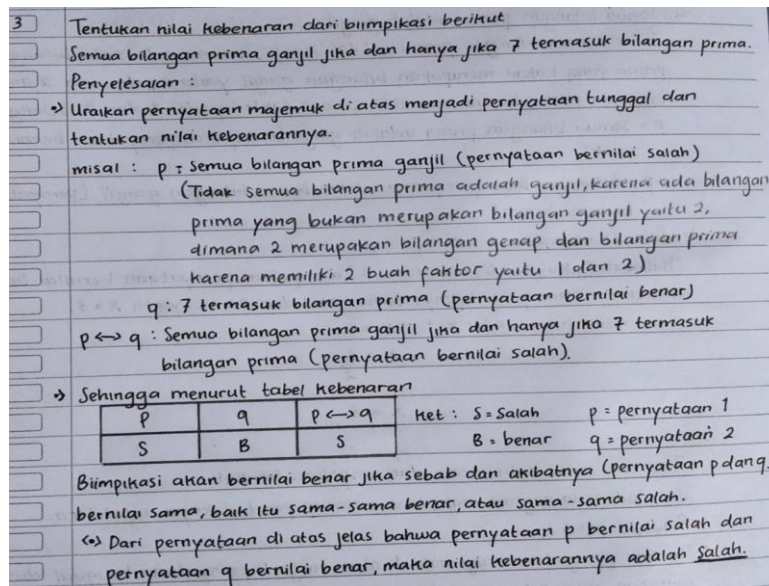 3 Tentukan nilai kebenaran dari biimpikasi berikut
Semua bilangan prima ganjil jika dan hanya jika 7 termasuk bilangan prima.
Penyelesaian :
•> Uraikan pernyataan majemuk di atas menjadi pernyataan tunggal dan
tentukan nilai kebenarannya.
misal : p : Semua bilangan prima ganjil (pernyataan bernilai salah)
(Tidak semua bilangan prima adalah ganjil, karena ada bilangan
prima yang bukan merupakan bilangan ganjil yaitu 2,
dimana 2 merupakan bilangan genap dan bilangan prima
karena memiliki 2 buah faktor yaitu 1 dan 2)
q : 7 termasuk bilangan prima (pernyataan bernilai benar)
p ↔ q : Semua bilangan prima ganjil jika dan hanya jika 7 termasuk
bilangan prima (pernyataan bernilai salah).
•> Sehingga menurut tabel kebenaran
p q p ↔ q ket : S = Salah p = pernyataan 1
S B S B = benar q = pernyataan 2
Biimpikasi akan bernilai benar jika sebab dan akibatnya (pernyataan p dan q
bernilai sama, baik itu sama-sama benar, atau sama-sama salah.
(•) Dari pernyataan di atas jelas bahwa pernyataan p bernilai salah dan
pernyataan q bernilai benar, maka nilai kebenarannya adalah salah.